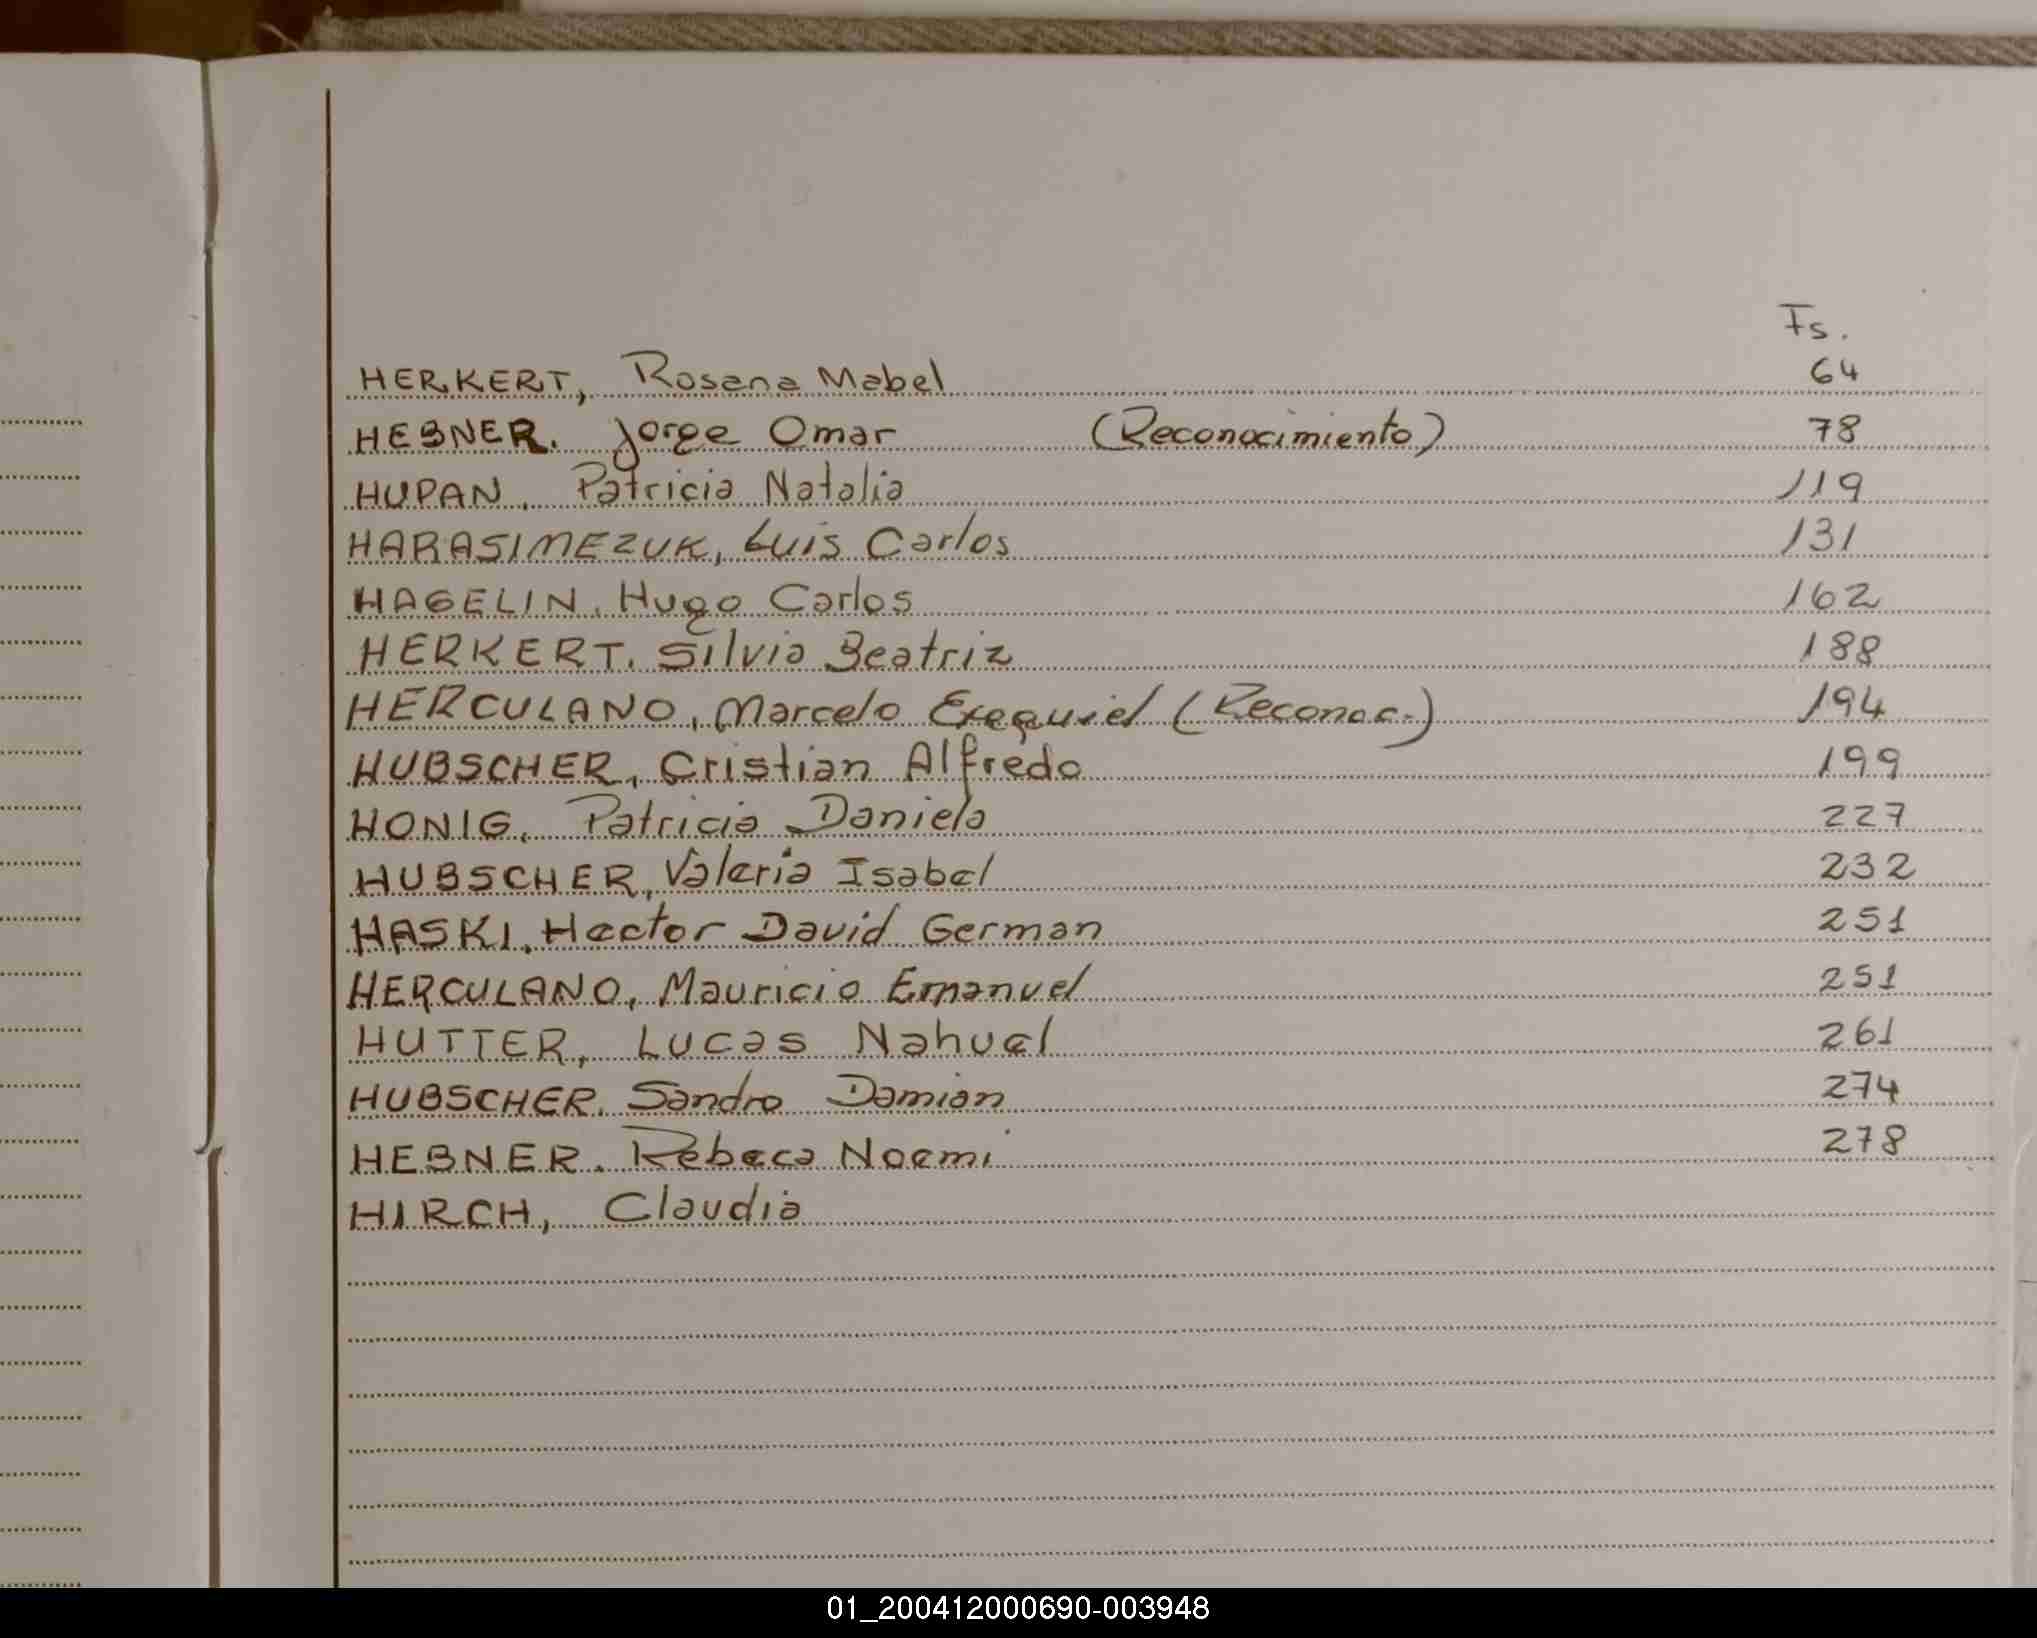 Fs.
HERKERT, Rosana Mabel 64
HEBNER. Jorge Omar (Reconocimiento) 78
HUPAN, Patricia Natalia 119
HARASIMEZUK, Luis Carlos 131
HAGELIN, Hugo Carlos 162
HERKERT. Silvia Beatriz 188
HERCULANO, Marcelo Exequiel (Reconoc.) 194
HUBSCHER, Cristian Alfredo 199
HONIG, Patricia Daniela 227
HUBSCHER, Valeria Isabel 232
HASKI, Hector David German 251
HERCULANO, Mauricio Emanuel 251
HUTTER, Lucas Nahuel 261
HUBSCHER. Sandro Damian 274
HEBNER. Rebeca Noemi 278
HIRCH, Claudia
01_200412000690-003948